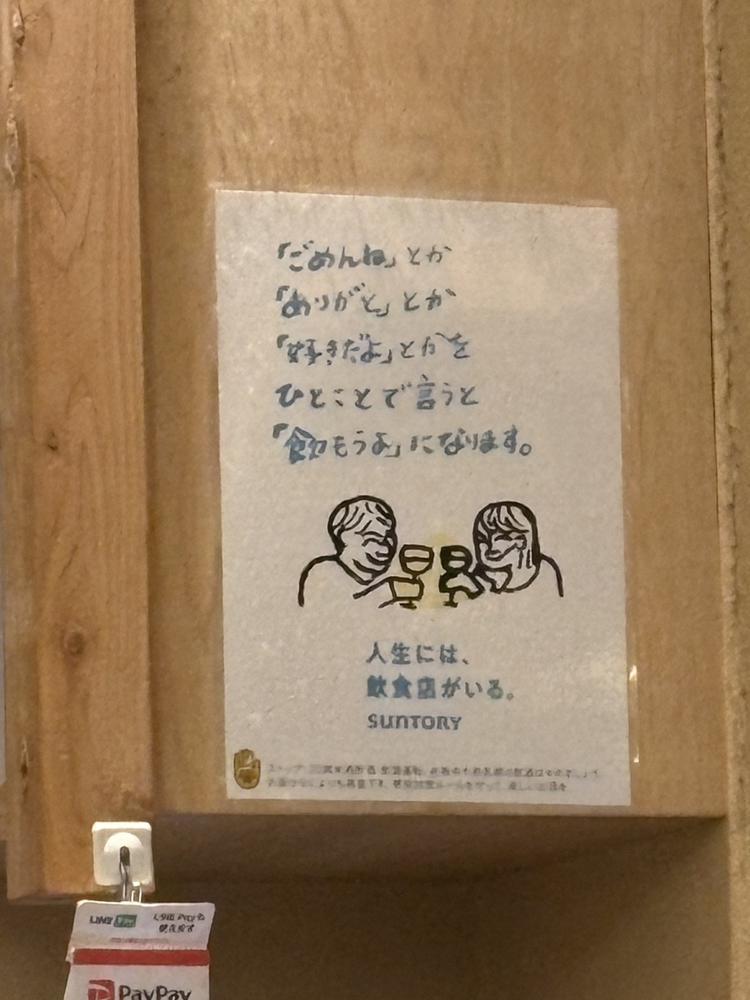 「ごめんね」とか
「ありがと」とか
「好きだよ」とかを
ひとことで言うと
「飲もうよ」になります。
人生には、
飲食店がいる。
SUNTORY
LINE Pay
PayPay